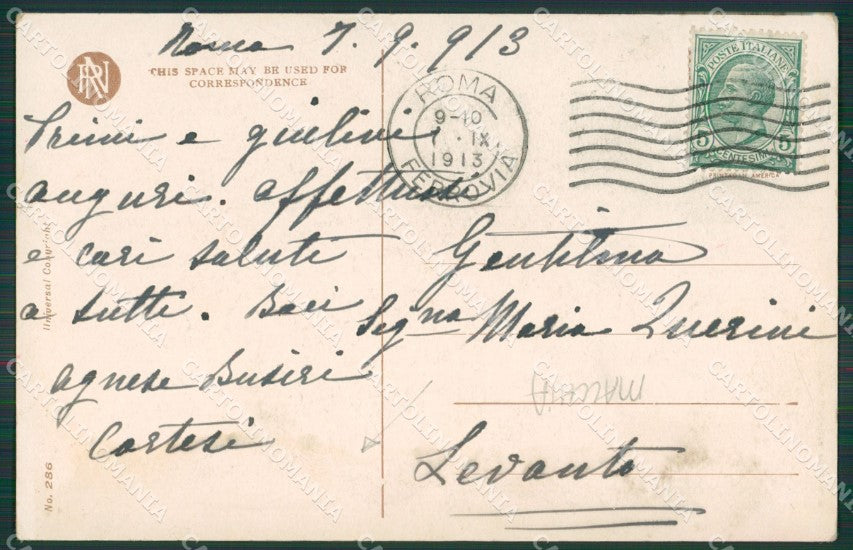 Roma 7. 9. 913
RN
THIS SPACE MAY BE USED FOR
CORRESPONDENCE
Primi e giulivi
auguri. affettuosi
e cari saluti
a tutti. Baci
Agnese Busiri
Cortesi
No. 286
Universal Copyright
ROMA
9-10
IX
1913
FERROVIA
POSTE ITALIANE
5 5
CENTESIMI
PRINTED IN AMERICA
Gentilma
Segna Maria Querini
Levanto
CARTOLINOMANIA